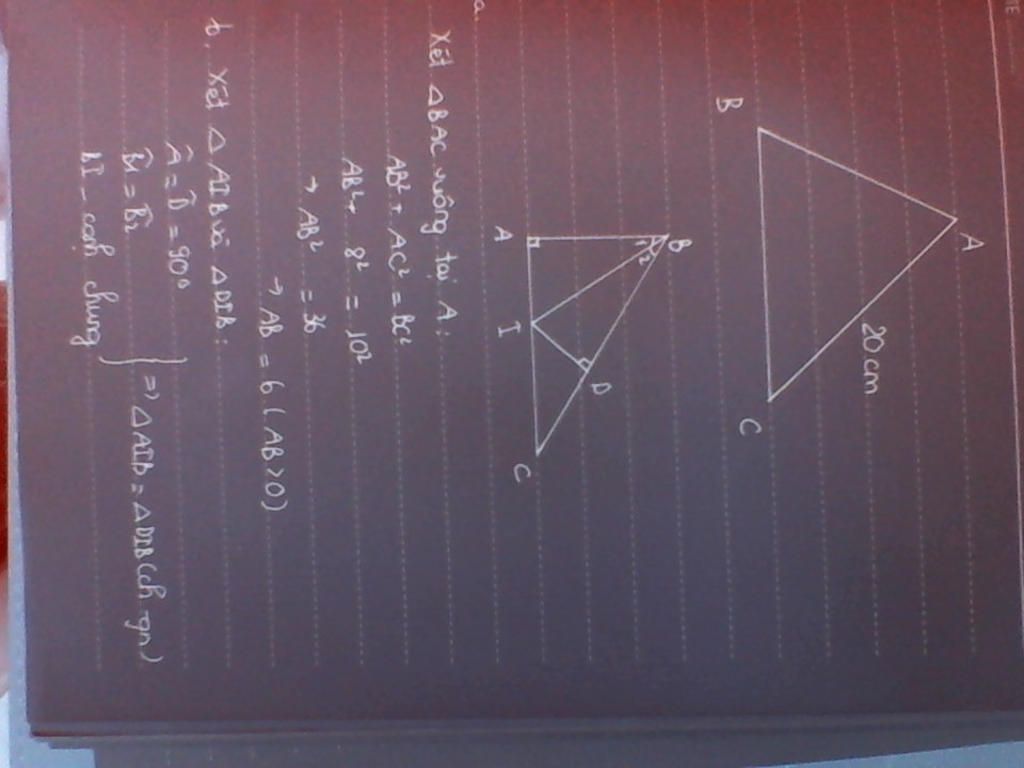 A
20 cm
B
C
B
1 2
D
A
I
C
a
Xét △BAC vuông tại A:
AB² + AC² = BC²
AB² + 8² = 10²
→ AB² = 36
→ AB = 6 (AB > 0)
b. Xét △AIB và △DIB:
Â = D̂ = 90°
B̂1 = B̂2
BI - cạnh chung
⇒ △AIB = △DIB (ch-gn)